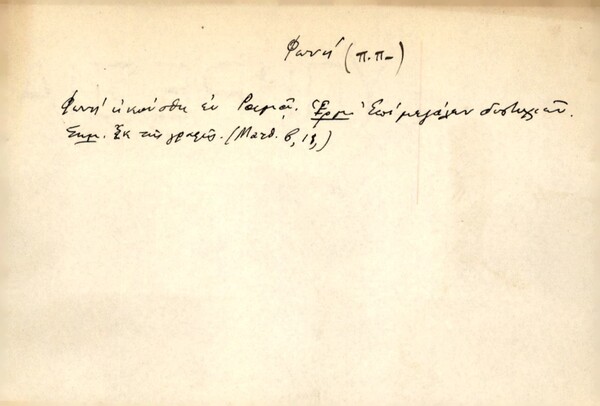 Φωνή (π.π–)
Φωνή ἠκούσθη ἐν Ραμᾷ. Ἑρμ. Ἐπί μεγάλων δυστυχιῶν.
Σημ. Ἐκ τῆς γραφῆς. (Ματθ. β, 18,)